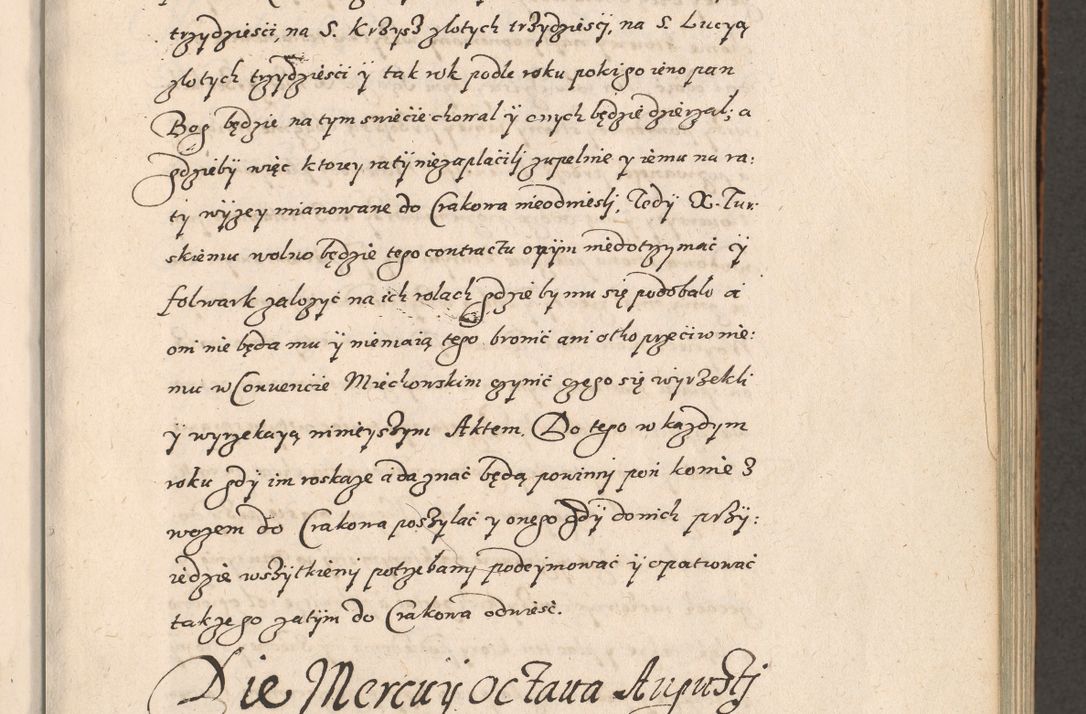 trzydzieści, na S. Krzysz złotych trzydzieści, na S. Lucyą
złotych trzydzieści ÿ tak rok podle roku poki go ieno pan
Bog będzie na tym swiećie chował ÿ onych będzie dzierzał; a
gdzieby więc ktorey ratÿ niezapłaćilÿ zupełnie y iemu na ra:
tÿ wÿzey mianowane do Crakowa nieodnieslj, Tedÿ X. Tur:
skiemu wolno będzie tego contractu onÿm niedotrzymać ÿ
folwark założyć na ich rolach gdzie by mu się podobało a
oni nie będą mu ÿ niemaią tego bronić ani oto przećiw nie:
mu w Conuenćie Miechowskim czynić czego się wÿrzekli
ÿ wyrzekayą ninieyszym Aktem. Do tego w kazdym
roku gdÿ im roskaze a da znać będą powinnÿ poń konie z
wozem do Crakowa poszÿlać y onego gdÿ do nich przÿ:
iedzie wszÿtkiemj potrzebamj podeÿmować ÿ opatrować
takze go zatÿm do Crakowa odwiesć.
Die Mercurÿ Octaua Augustj